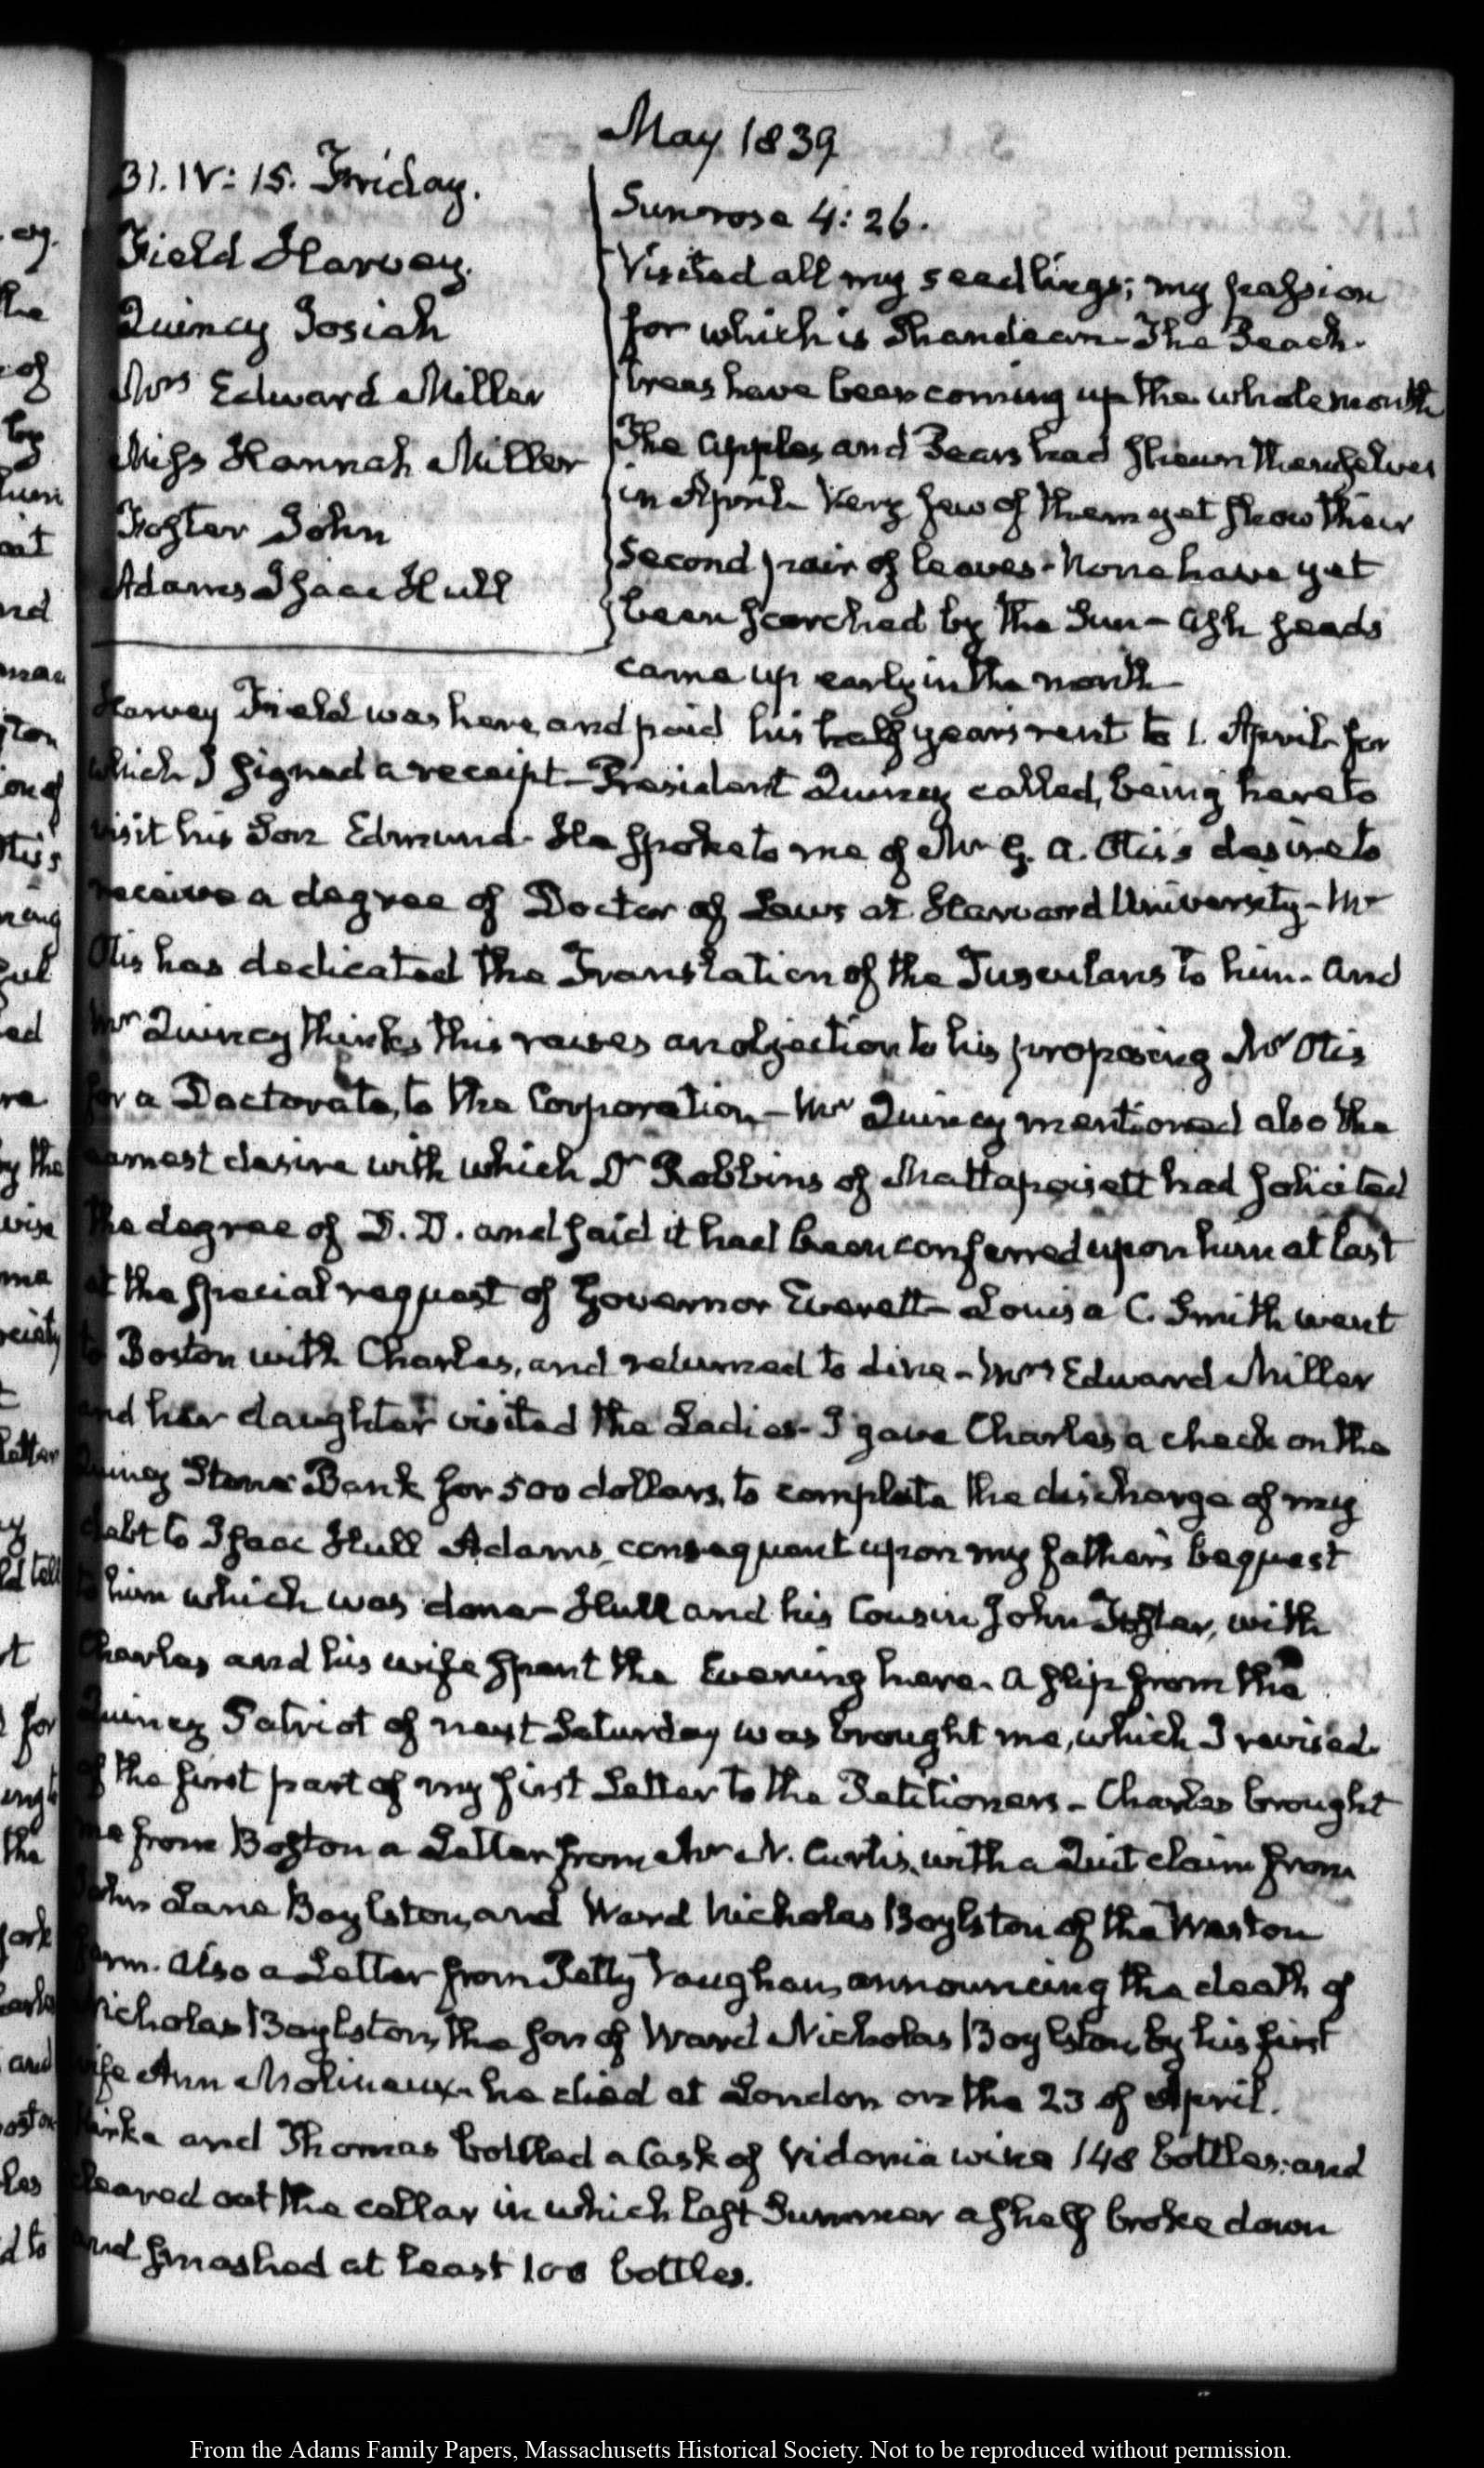 May 1839
31. IV: 15. Friday.
Field Harvey.
Quincy Josiah
Mrs Edward Miller
Miss Hannah Miller
Foster John
Adams Isaac Hull
Sun rose 4: 26.
Visited all my seedlings; my passion
for which is Shandean - The Peach-
trees have been coming up the whole month
The apples and Pears had shewn themselves
in April. Very few of them yet show their
second pair of leaves - None have yet
been scorched by the Sun - Ash seeds
came up early in the month
Harvey Field was here, and paid his half years rent to 1. April for
which I signed a receipt - President Quincy called, being here to
visit his Son Edmund. He spoke to me of Mr G. A. Otis's desire to
receive a degree of Doctor of Laws at Harvard University - Mr
Otis has dedicated the Translation of the Tusculans to him. and
Mr Quincy thinks this raises an objection to his proposing Mr Otis
for a Doctorate, to the Corporation - Mr Quincy mentioned also the
earnest desire with which Dr Robbins of Mattapoisett had solicited
the degree of D. D. and said it had been conferred upon him at last
at the special request of Governor Everett - Louisa C. Smith went
to Boston with Charles, and returned to dine - Mrs Edward Miller
and her daughter visited the Ladies - I gave Charles a check on the
Quincy Stone Bank for 500 dollars, to complete the discharge of my
debt to Isaac Hull Adams, consequent upon my father's bequest
to him which was done - Hull and his Cousin John Foster, with
Charles and his wife spent the Evening here. A slip from the
Quincy Patriot of next Saturday was brought me, which I revised
of the first part of my first Letter to the Petitioners - Charles brought
me from Boston a Letter from Mr N. Curtis, with a Quit claim from
John Lane Boylston, and Ward Nicholas Boylston of the Weston
farm. also a Letter from Petty Vaughan, announcing the death of
Nicholas Boylston, the son of Ward Nicholas Boylston, by his first
wife Ann Molineaux - he died at London on the 23 of April.
Kirke and Thomas bottled a Cask of Vidonia wine 148 bottles; and
cleared out the cellar in which last Summer a shelf broke down
and smashed at least 100 bottles.
From the Adams Family Papers, Massachusetts Historical Society. Not to be reproduced without permission.